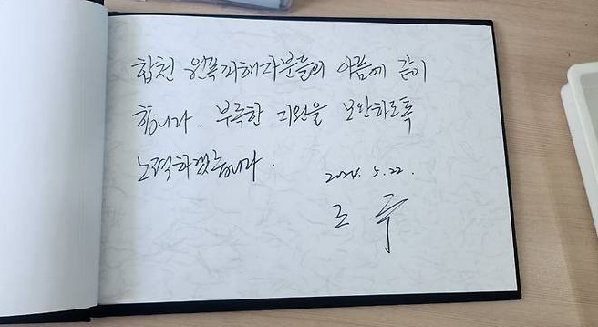 합천 원폭피해자분들의 아픔에 같이
합니다. 부족한 지원을 보완하도록
노력하겠습니다.
2024. 5. 22.
조 국